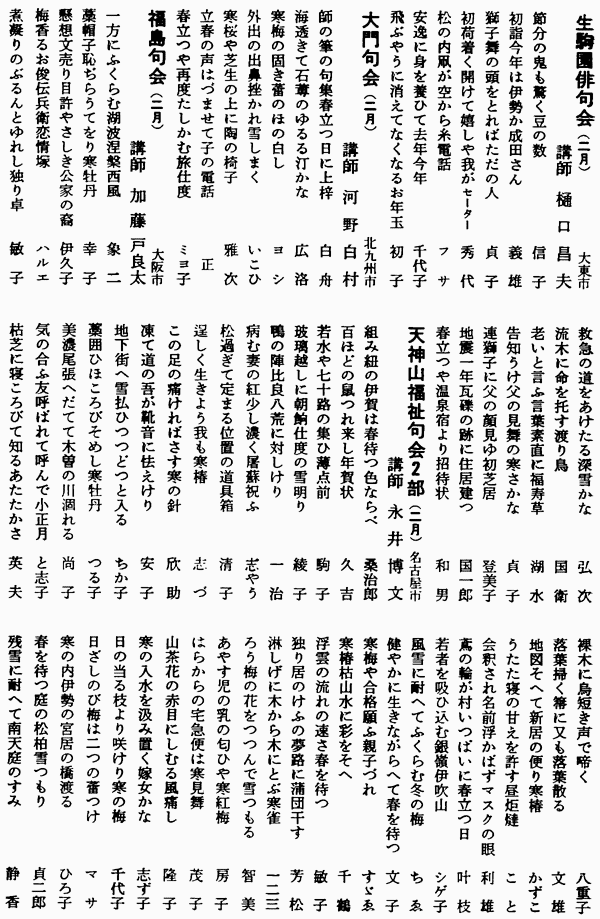 生駒園俳句会（二月） 大東市
講師 樋口昌夫
節分の鬼も驚く豆の数 信子
初詣今年は伊勢か成田さん 義雄
獅子舞の頭をとればただの人 貞子
初荷着く開けて嬉しや我がセーター 秀代
松の内凧が空から糸電話 フサ
安逸に身を養ひて去年今年 千代子
飛ぶやうに消えてなくなるお年玉 初子
大門句会（二月） 北九州市
講師 河野白村
師の筆の句集春立つ日に上梓 白舟
海透きて石蓴のゆるる汀かな 広洛
寒梅の固き蕾のほの白し ヨシ
外出の出鼻挫かれ雪しまく いこひ
寒桜や芝生の上に陶の椅子 雅次
立春の声はづませて子の電話 正
春立つや再度たしかむ旅仕度 ミヨ子
福島句会（二月） 大阪市
講師 加藤戸良太
一方にふくらむ湖波涅槃西風 象二
藁帽子恥ぢらうてをり寒牡丹 幸子
懸想文売り目許やさしき公家の裔 伊久子
梅香るお俊伝兵衛恋情塚 ハルエ
煮凝りのぶるんとゆれし独り卓 敏子
救急の道をあけたる深雪かな 弘次
流木に命を托す渡り鳥 国衛
老いと言ふ言葉素直に福寿草 湖水
告知うけ父の見舞の寒さかな 貞子
連獅子に父の顔見ゆ初芝居 登美子
地震一年瓦礫の跡に住居建つ 国一郎
春立つや温泉宿より招待状 和男
天神山福祉句会2部（二月） 名古屋市
講師 永井博文
組み紐の伊賀は春待つ色ならべ 桑治郎
百ほどの鼠つれ来し年賀状 久吉
若水や七十路の集ひ薄点前 駒子
玻璃越しに朝餉仕度の雪明り 綾子
鴨の陣比良八荒に対しけり 一治
病む妻の紅少し濃く屠蘇祝ふ 志やう
松過ぎて定まる位置の道具箱 清子
逞しく生きよう我も寒椿 志づ
この足の痛ければさす寒の針 欣助
凍て道の吾が靴音に怯えけり 安子
地下街へ雪払ひつつどつと入る ちか子
藁囲ひほころびそめし寒牡丹 つる子
美濃尾張へだてて木曽の川涸れる 尚子
気の合ふ友呼ばれて呼んで小正月 と志子
枯芝に寝ころびて知るあたたかさ 英夫
裸木に烏短き声で啼く 八重子
落葉掃く箒に又も落葉散る 文雄
地図そへて新居の便り寒椿 かずこ
うたた寝の甘えを許す昼炬燵 こと
会釈され名前浮かばずマスクの眼 利雄
鳶の輪が村いつぱいに春立つ日 叶枝
若者を吸ひ込む銀嶺伊吹山 シゲ子
風雪に耐へてふくらむ冬の梅 ちゑ
健やかに生きながらへて春を待つ 文子
寒梅や合格願ふ親子づれ すゞゑ
寒椿枯山水に彩をそへ 千鶴
浮雲の流れの速さ春を待つ 敏子
独り居のけふの夢路に蒲団干す 芳松
淋しげに木から木にとぶ寒雀 一二三
ろう梅の花をつつんで雪つもる 智美
あやす児の乳の匂ひや寒紅梅 房子
はらからの宅急便は寒見舞 茂子
山茶花の赤目にしむる風痛し 隆子
寒の入水を汲み置く嫁女かな 志ず子
日の当る枝より咲けり寒の梅 千代子
日ざしのび梅は二つの蕾つけ マサ
寒の内伊勢の宮居の橋渡る ひろ子
春を待つ庭の松柏雪つもり 貞二郎
残雪に耐へて南天庭のすみ 静香